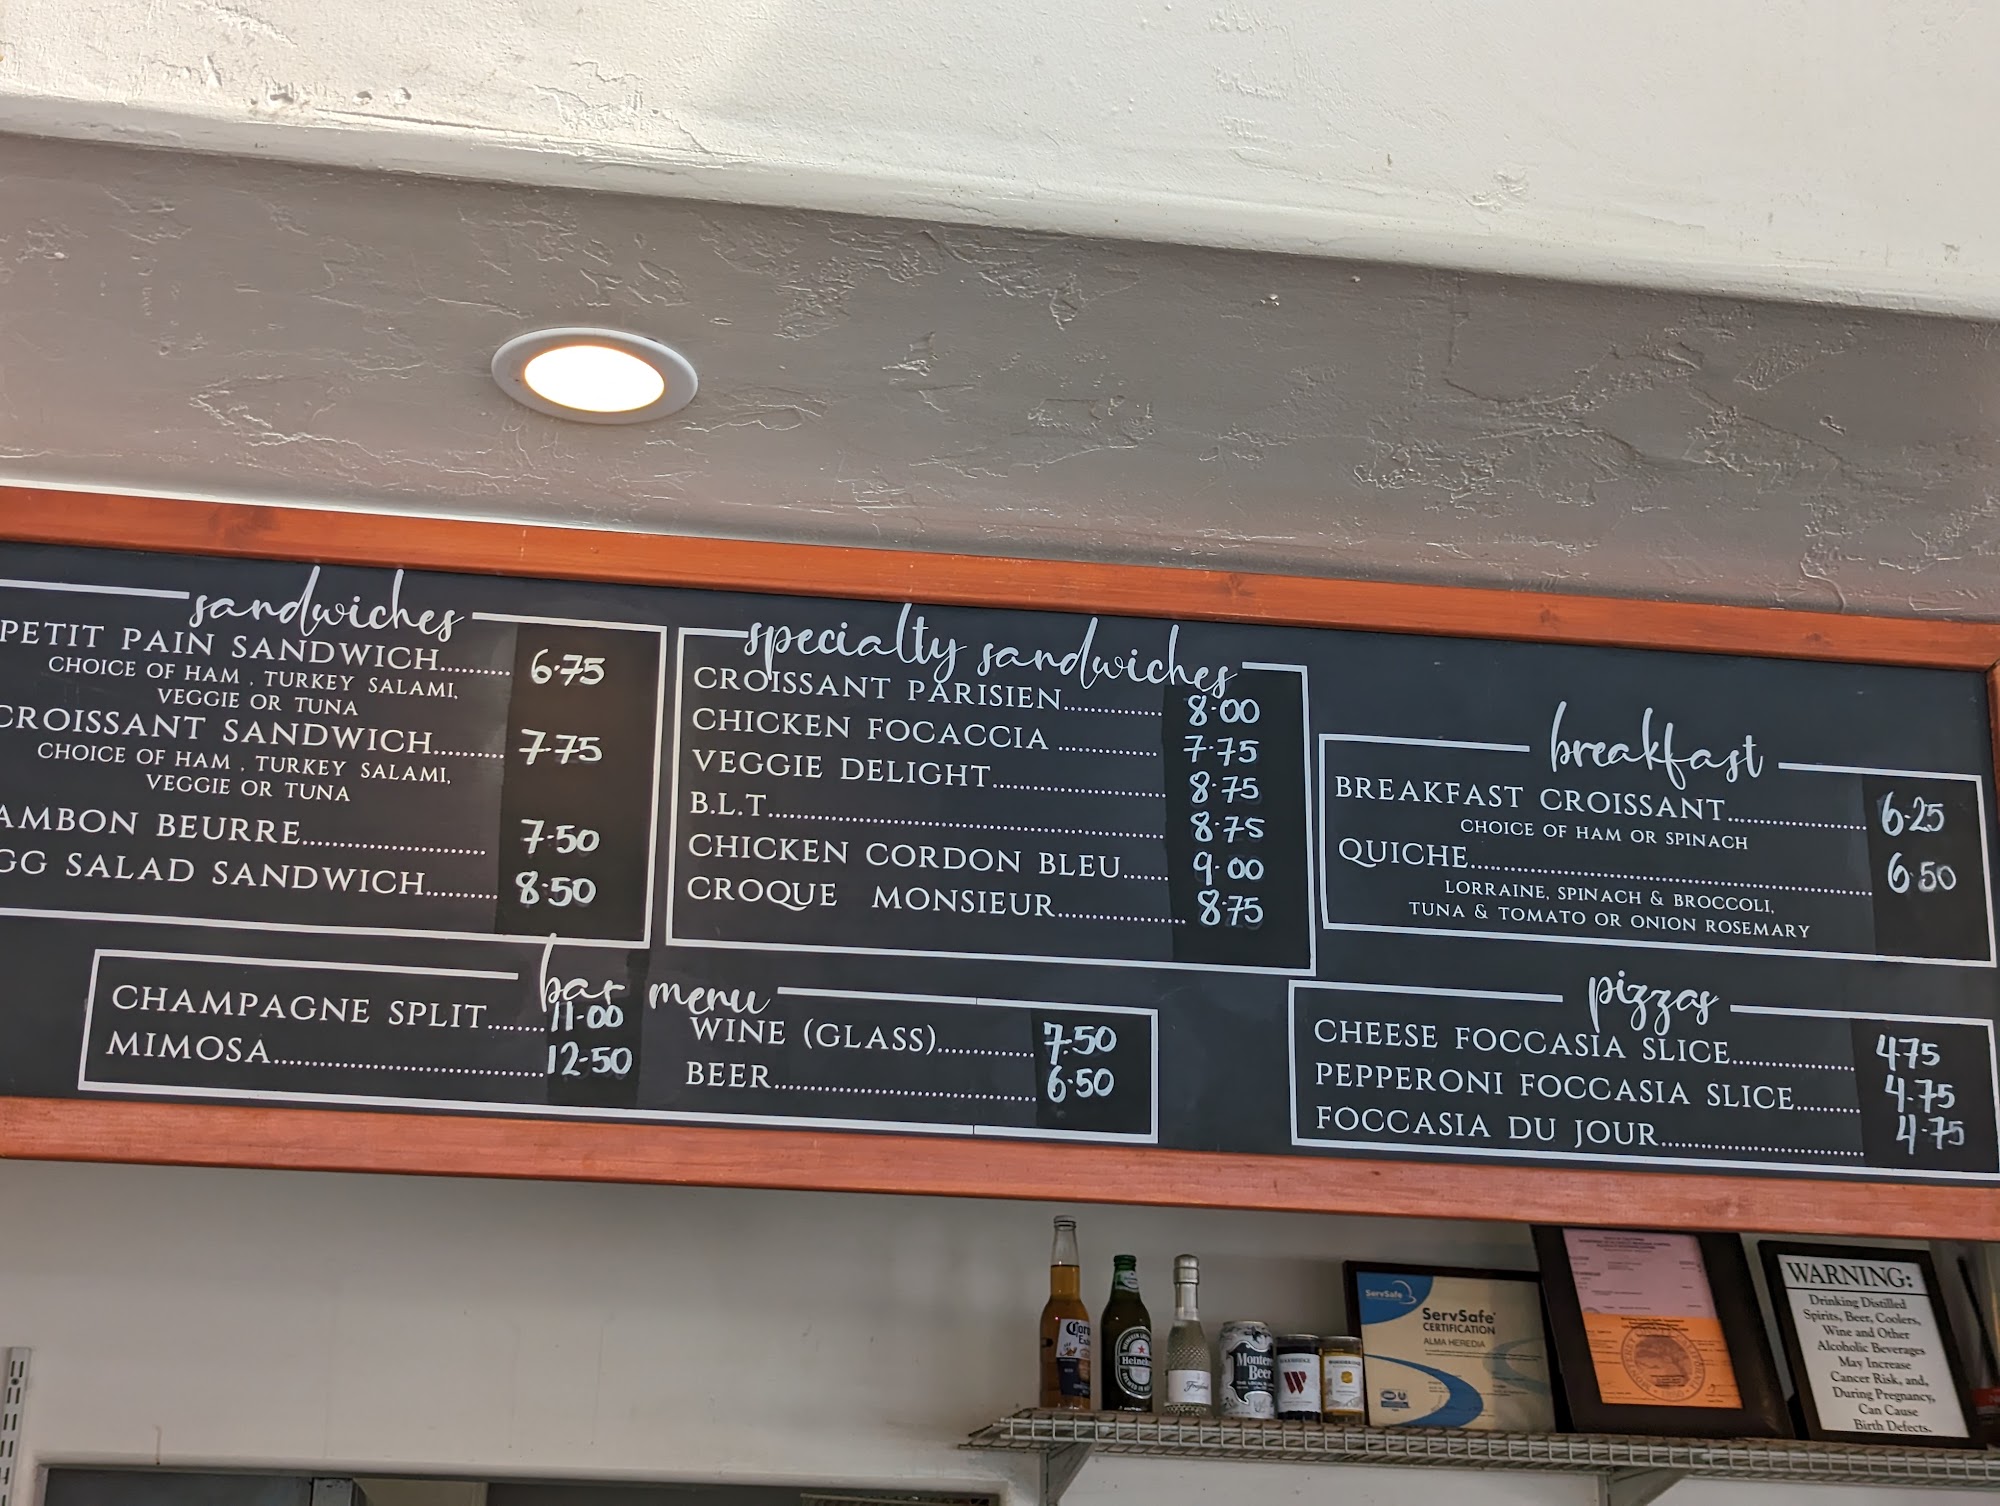 sandwiches
PETIT PAIN SANDWICH......... 6.75
CHOICE OF HAM , TURKEY SALAMI,
VEGGIE OR TUNA
CROISSANT SANDWICH......... 7.75
CHOICE OF HAM , TURKEY SALAMI,
VEGGIE OR TUNA
AMBON BEURRE........................ 7.50
GG SALAD SANDWICH......... 8.50
specialty sandwiches
CROISSANT PARISIEN............. 8.00
CHICKEN FOCACCIA ............. 7.75
VEGGIE DELIGHT....................... 8.75
B.L.T..................................................... 8.75
CHICKEN CORDON BLEU...... 9.00
CROQUE MONSIEUR................. 8.75
breakfast
BREAKFAST CROISSANT.................. 6.25
CHOICE OF HAM OR SPINACH
QUICHE..................................................... 6.50
LORRAINE, SPINACH & BROCCOLI,
TUNA & TOMATO OR ONION ROSEMARY
bar menu
CHAMPAGNE SPLIT....... 11.00
MIMOSA................................... 12.50
WINE (GLASS)............. 7.50
BEER................................... 6.50
pizzas
CHEESE FOCCASIA SLICE............... 475
PEPPERONI FOCCASIA SLICE........ 4.75
FOCCASIA DU JOUR.......................... 4.75
Heineken
Monterey
Beer
ServSafe
ServSafe®
CERTIFICATION
ALMA HEREDIA
WARNING:
Drinking Distilled
Spirits, Beer, Coolers,
Wine and Other
Alcoholic Beverages
May Increase
Cancer Risk, and,
During Pregnancy,
Can Cause
Birth Defects.